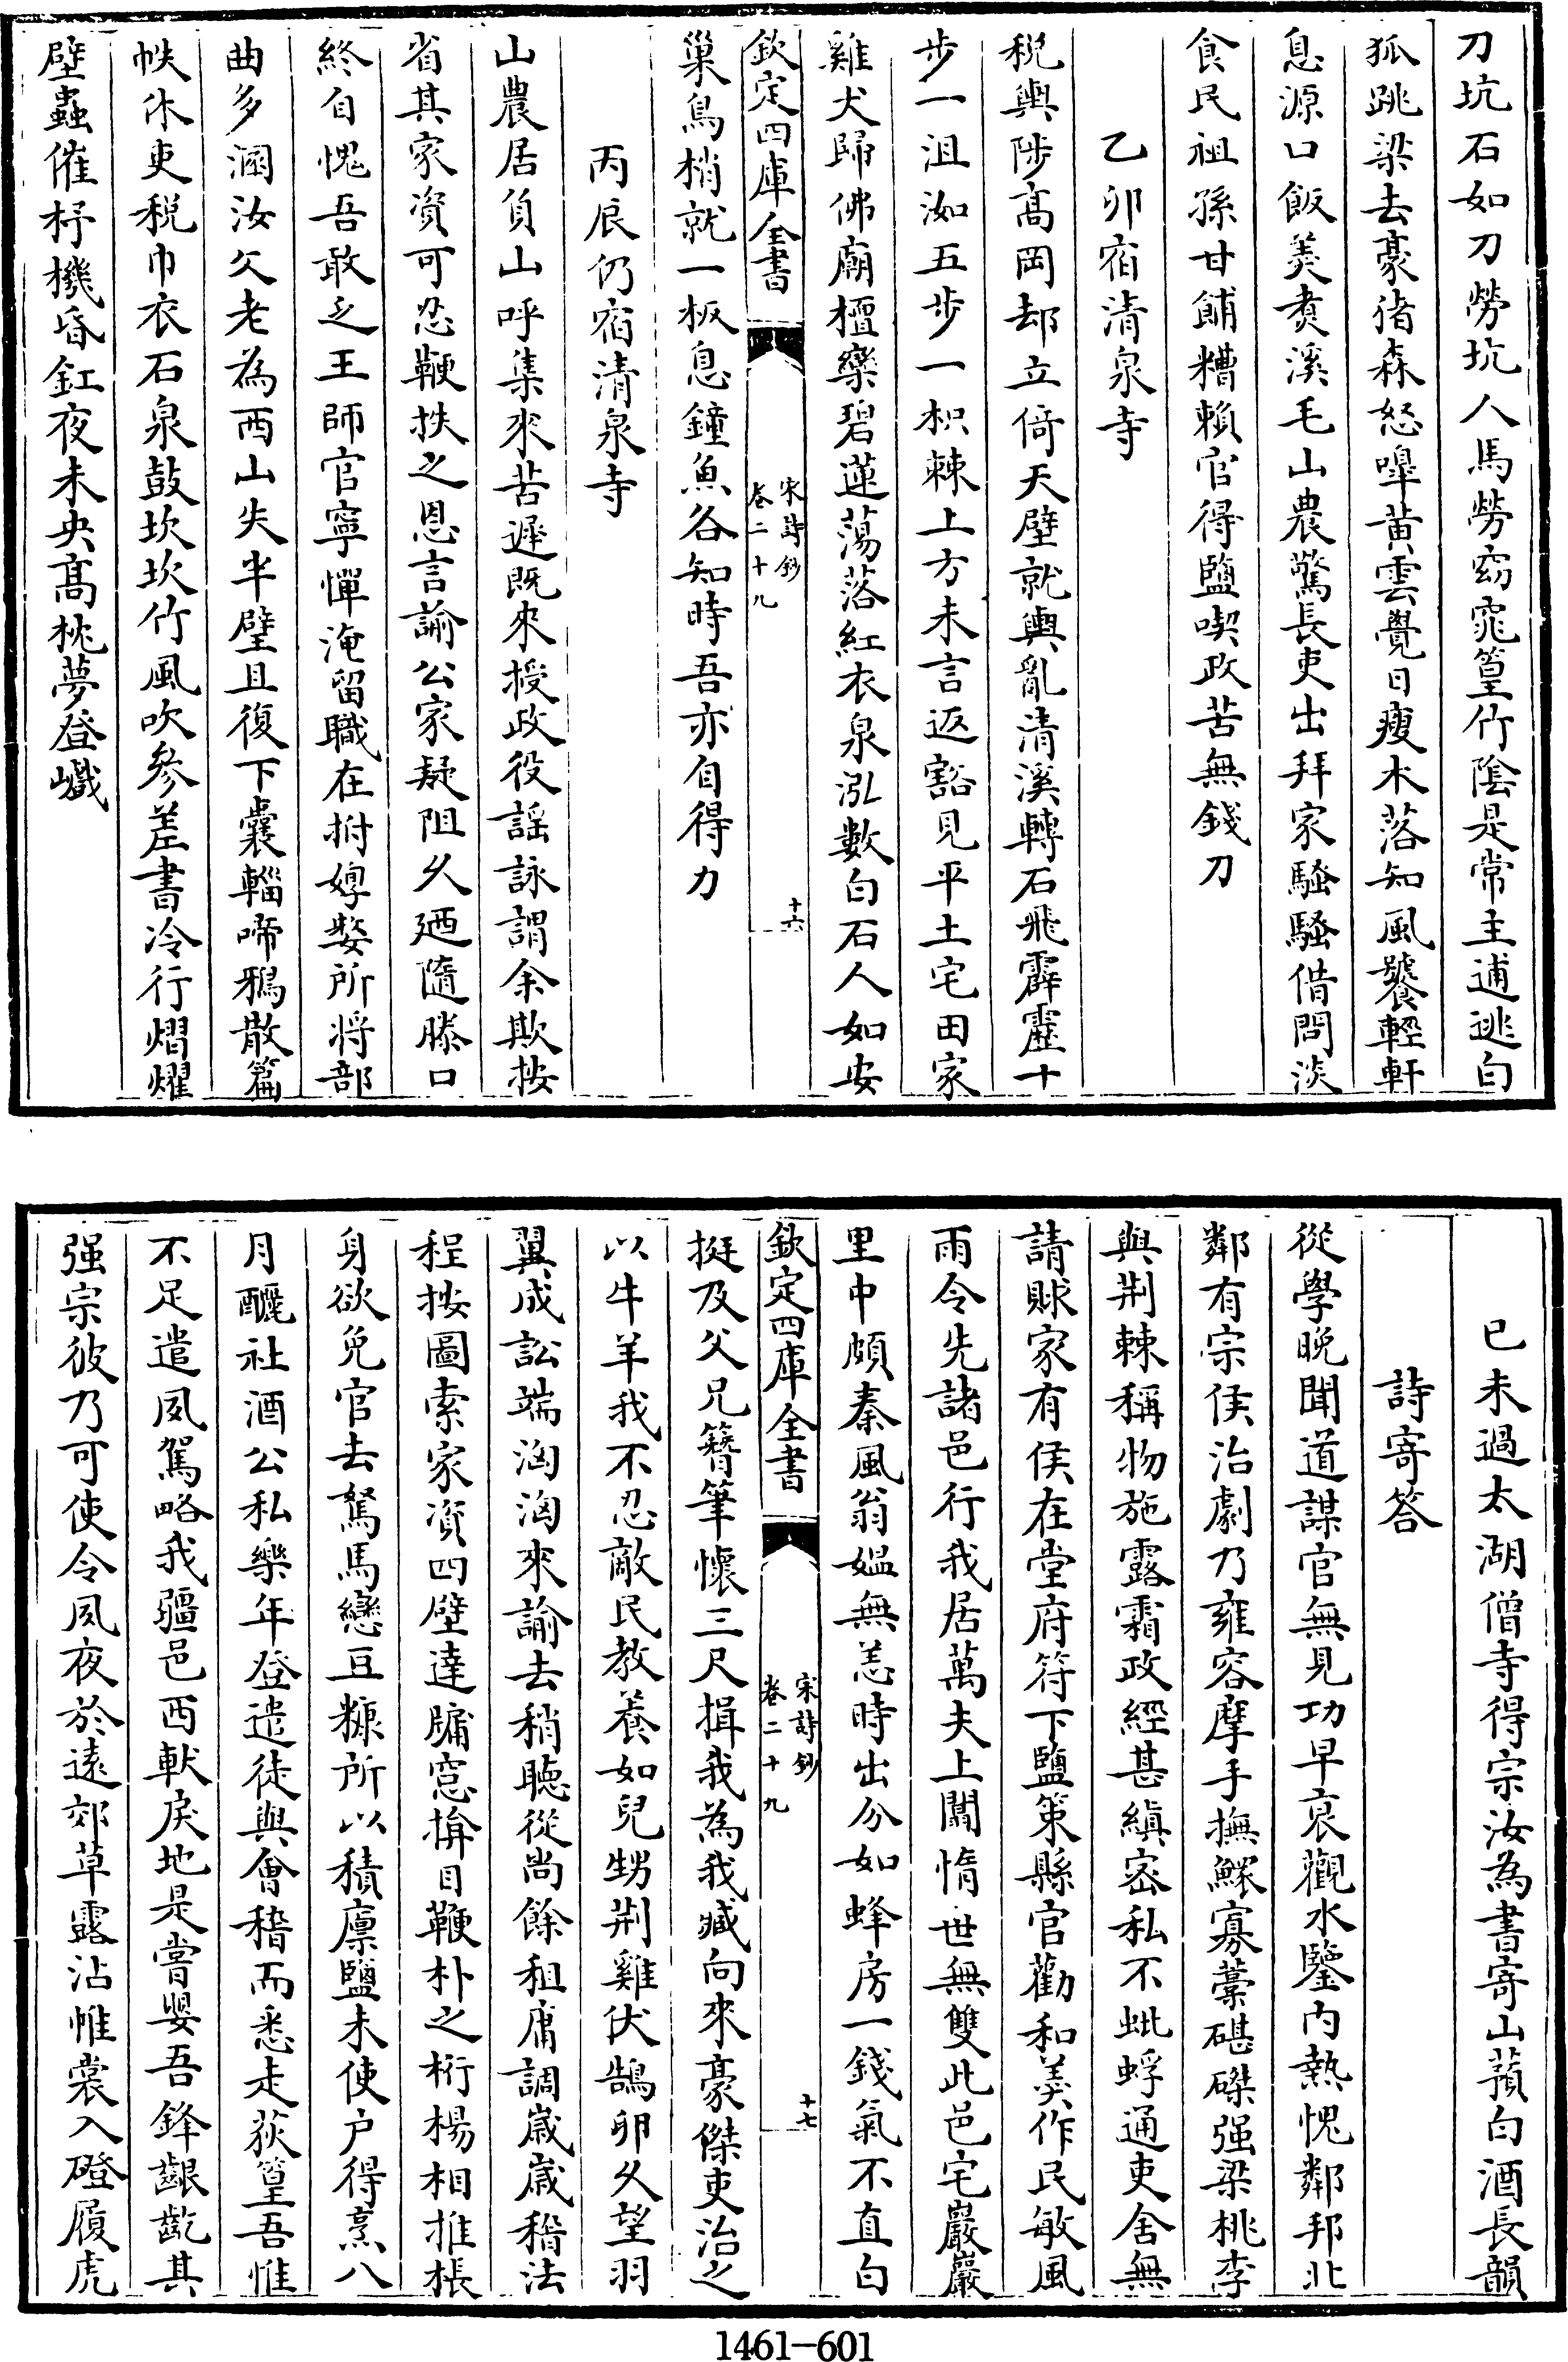 刀坑石如刀勞坑人馬勞窈窕篁竹陰是常主逋逃白
狐跳梁去豪豬森怒嘷黃雲覺日瘦木落知風饕輕軒
息源口飯羹煑溪毛山農驚長吏出拜家騷騷借問淡
食民祖孫甘餔糟賴官得鹽喫政苦無錢刀
乙卯宿清泉寺
稅輿陟髙岡却立倚天壁就輿亂清溪轉石飛霹靂十
步一沮洳五步一枳棘上方未言返豁見平土宅田家
雞犬歸佛廟檀欒碧蓮蕩落紅衣泉泓數白石人如安
欽定四庫全書
宋詩鈔
卷二十九
十六
巢鳥梢就一板息鐘魚各知時吾亦自得力
丙辰仍宿清泉寺
山農居負山呼集來苦遲既來授政役謡詠謂余欺按
省其家資可忍鞭抶之恩言諭公家疑阻久廼隨滕口
終自愧吾敢乏王師官寧憚淹留職在拊㷀嫠所將部
曲多溷汝父老為西山失半壁且復下囊輜啼鴉散篇
帙休吏稅巾衣石泉鼓坎坎竹風吹參差書冷行熠燿
壁蟲催杼機昏釭夜未央髙枕夢登巇
己未過太湖僧寺得宗汝為書寄山蕷白酒長韻
詩寄答
從學晚聞道謀官無見功早衰觀水鑒內熱愧鄰邦北
鄰有宗侯治劇乃雍容摩手撫鰥寡藁碪磔强梁桃李
與荆棘稱物施露霜政經甚縝宻私不蚍蜉通吏舍無
請賕家有侯在堂府符下鹽䇿縣官勸和羹作民敏風
雨令先諸邑行我居萬夫上闒惰世無雙此邑宅巖巖
里中頗秦風翁媼無恙時出分如蜂房一錢氣不直白
欽定四庫全書
宋詩鈔
卷二十九
十七
挺及父兄簪筆懷三尺揖我為我臧向來豪傑吏治之
以牛羊我不忍敵民教養如兒甥荆雞伏鵠卵久望羽
翼成訟端洶洶來諭去稍聽從尚餘租庸調歲歲稽法
程按圖索家資四壁達牖窓揜目鞭朴之桁楊相推棖
身欲免官去駑馬戀豆糠所以積廩鹽未使户得烹八
月釃社酒公私樂年登遣徒與會稽而悉走荻篁吾惟
不足遣夙駕略我疆邑西軑戾地是嘗嬰吾鋒齦齕其
强宗彼乃可使令夙夜於逺郊草露沾帷裳入磴履虎
1461-601